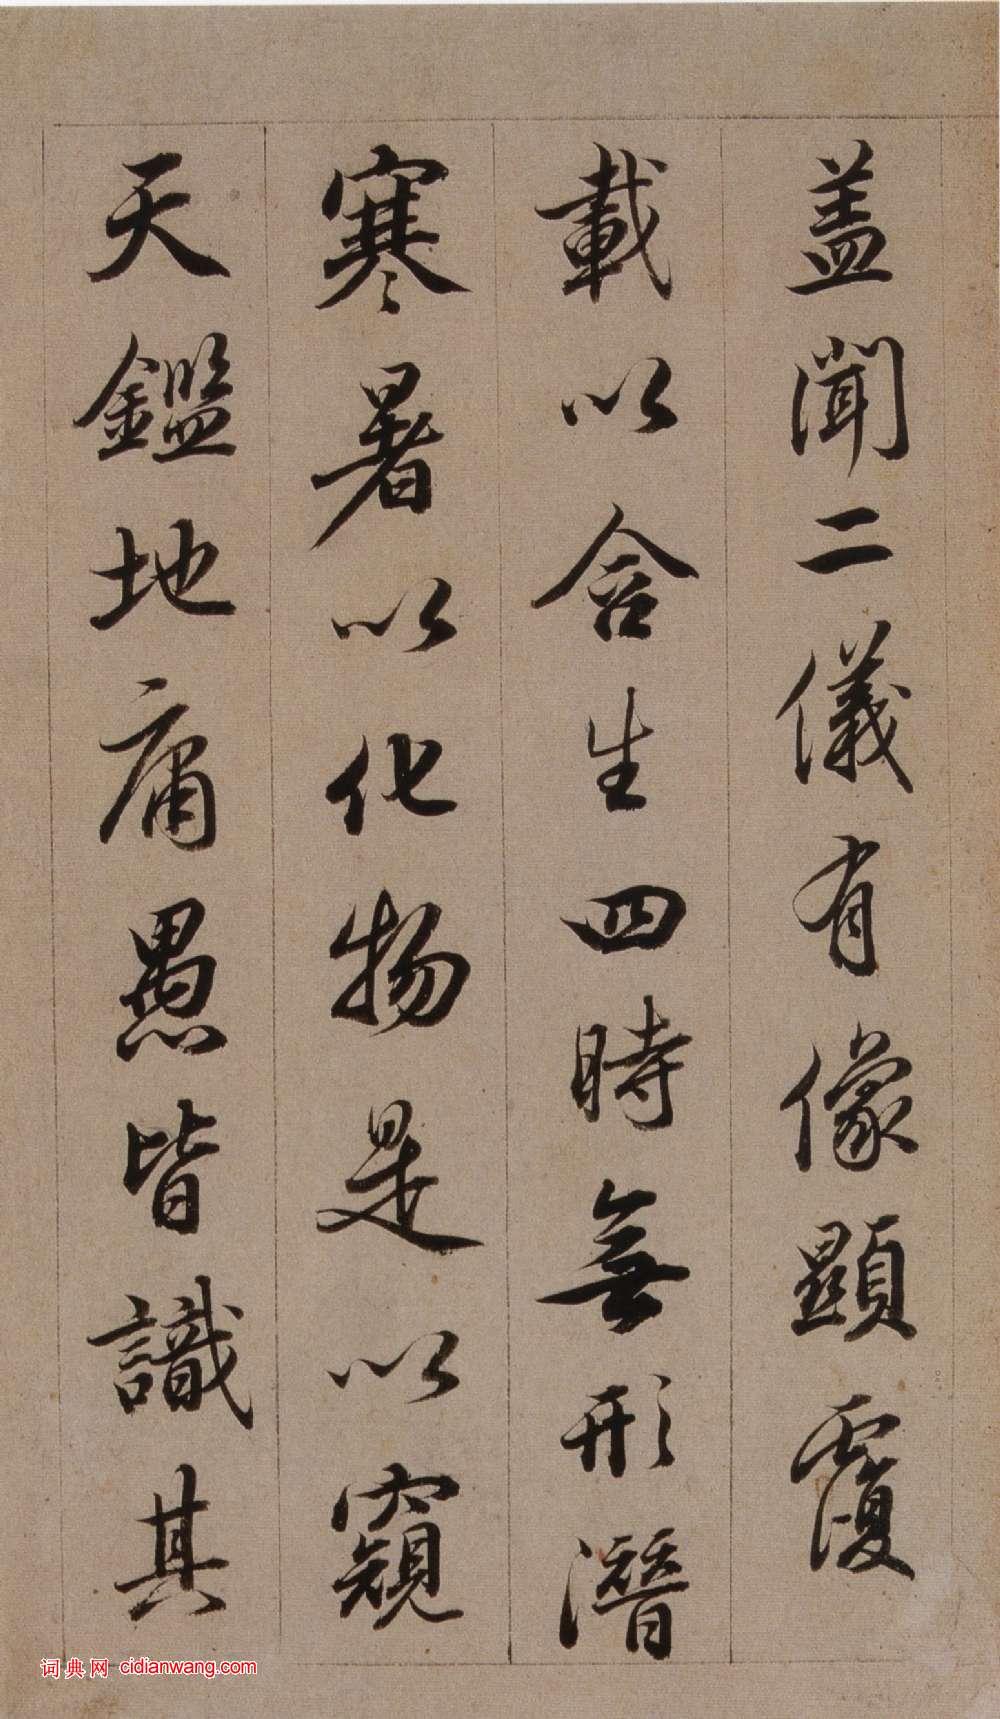 盖聞二儀有像顯覆
載以含生四時無形潛
寒暑以化物是以窺
天鑑地庸愚皆識其
词典网 cidianwang.com